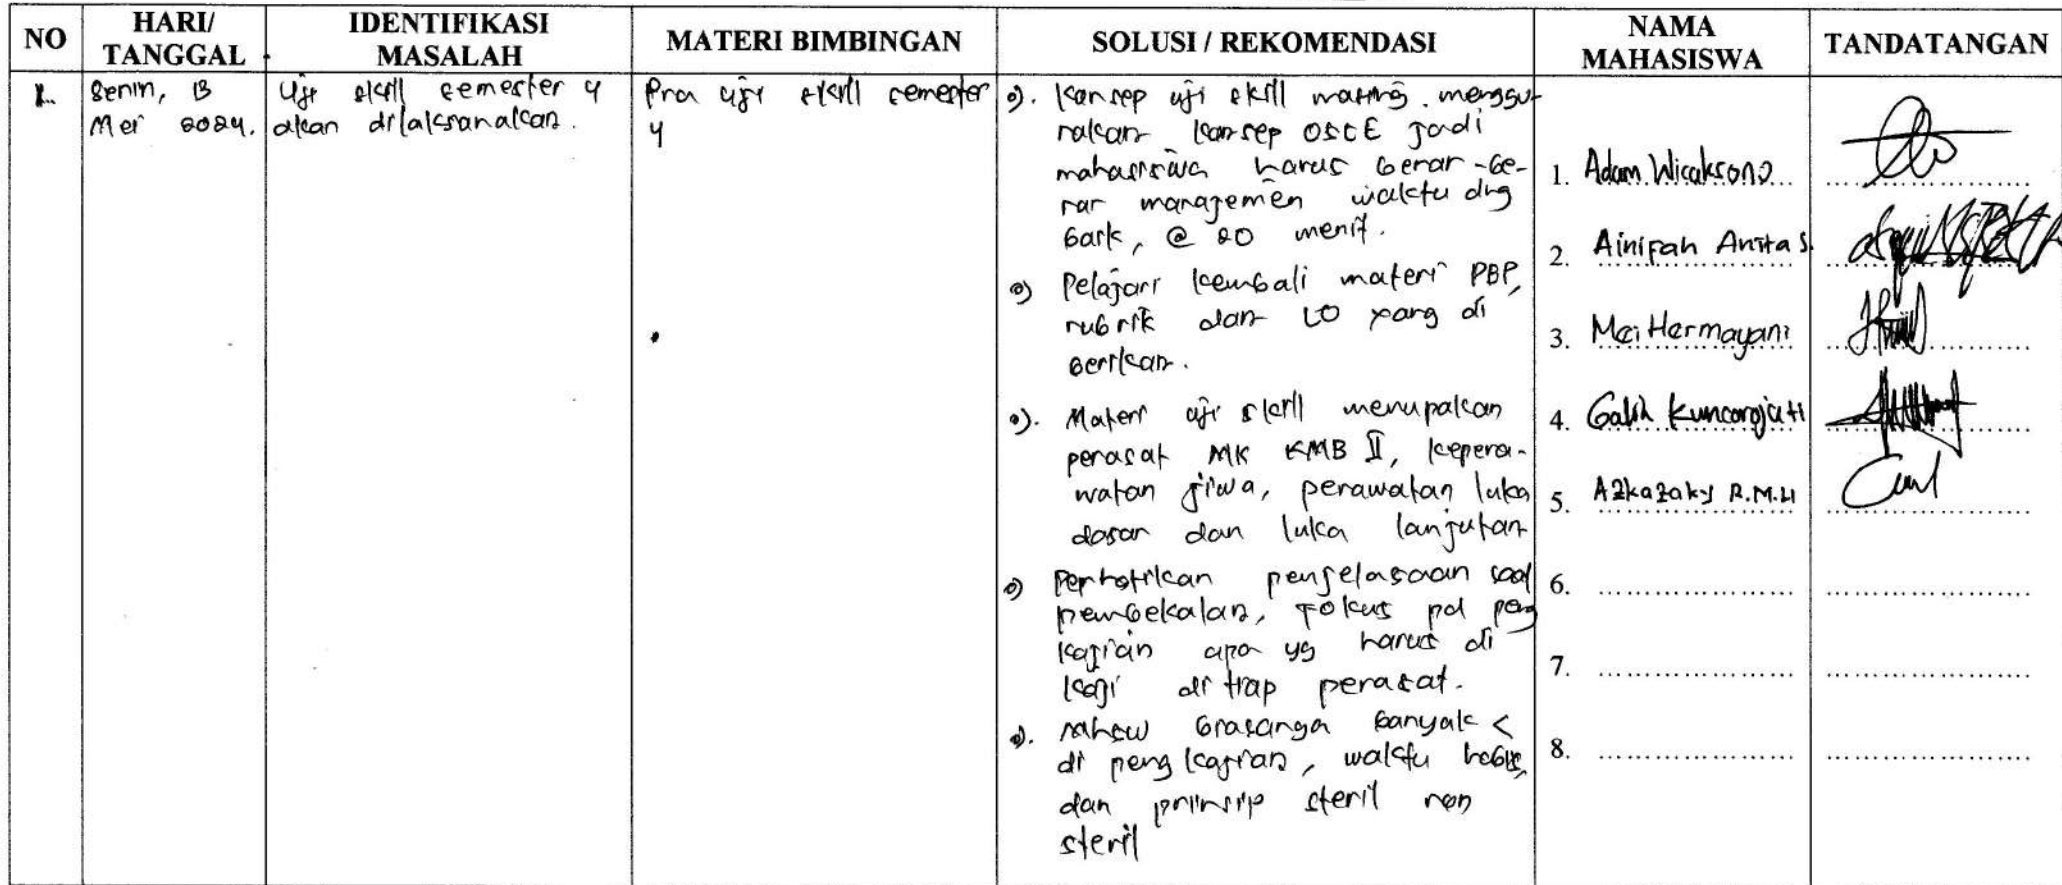 NO
HARI/ TANGGAL
IDENTIFIKASI MASALAH
MATERI BIMBINGAN
SOLUSI / REKOMENDASI
NAMA MAHASISWA
TANDATANGAN
1.
Senin, 13
Mei 2024.
Uji skill semester 4
akan dilaksanakan.
Pra uji skill semester
4
Konsep uji skill masing. menggu-
nakan konsep OSCE jadi
mahasiswa harus benar-be-
nar managemen waktu dng
baik, @ 20 menit.
Pelajari kembali materi PBP,
rubrik dan LO yang di
berikan.
Materi uji skill merupakan
perasat MK KMB II, kepera-
watan jiwa, perawatan luka
dasar dan luka lanjutan
Perhatikan penjelasaan saat
pembekalan, Fokus pd peng
kajian apa yg harus di
kaji di tiap perasat.
Mhsw biasanya banyak <
di pengkajian, waktu habis,
dan prinsip steril non
steril
1. Adam Wicaksono
2. Ainifah Anita S.
3. Mei Hermayani
4. Galih Kuncorojati
5. Azkazaky R.M.H
6.
7.
8.